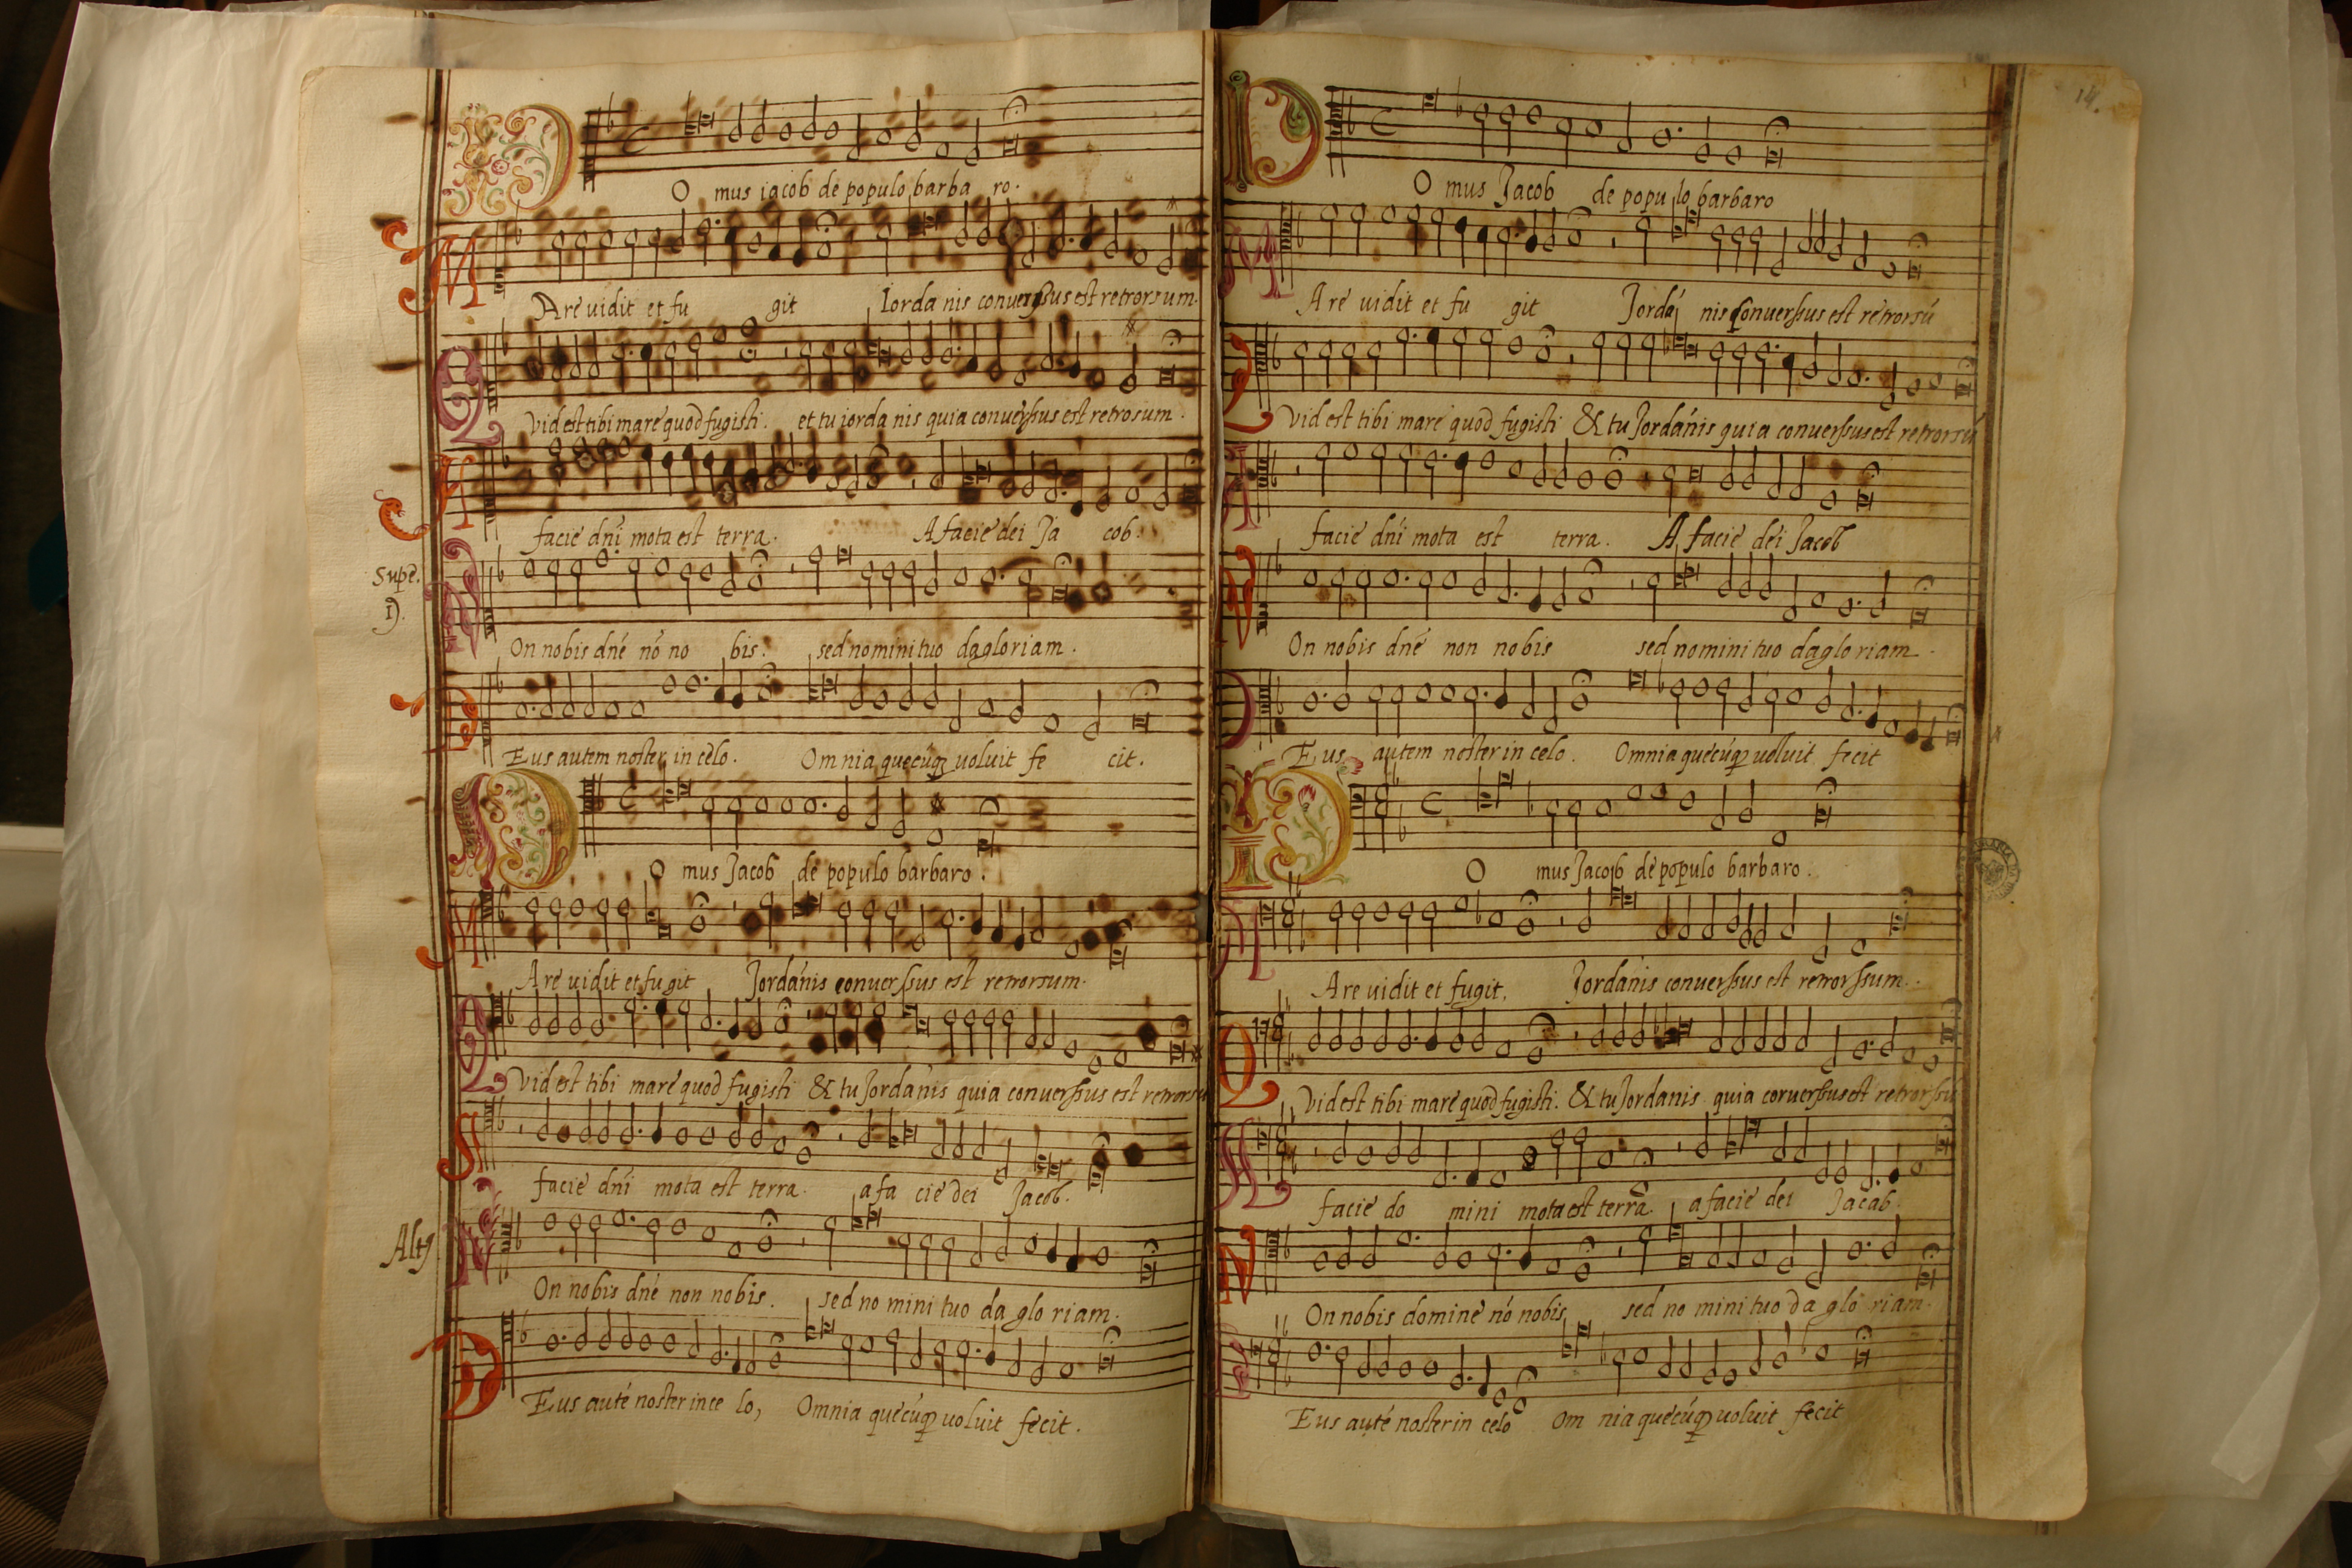 DO mus iacob de populo barba ro.
MAre vidit et fu git Iorda nis conversus est retrorsum.
QVid est tibi mare quod fugisti. et tu iorda nis quia converssus est retrosum.
A facie dn̄i mota est terra. A facie dei Ja cob.
Supe. 1).
NOn nobis dn̄e nō no bis. sed nomini tuo da gloriam.
DEus autem noster in celo. Omnia quecūq uoluit fe cit.
DO mus Jacob de populo barbaro.
MAre uidit et fu git Jordanis converssus est retrorsum.
QVid est tibi mare quod fugisti & tu Jordanis quia converssus est retrorsu
A facie dn̄i mota est terra. a fa cie dei Jacob.
Altq
NOn nobis dn̄e non nobis. sed no mini tuo da glo riam.
DEus autē noster in ce lo, Omnia quecūq uoluit fecit.
14.
DO mus Jacob de popu lo barbaro
MAre uidit et fu git Jordā nis converssus est retrorsū
QVid est tibi mare quod fugisti & tu Jordanis quia converssus est retrorsū
A facie dn̄i mota est terra. A facie dei Jacob
NOn nobis dn̄e non nobis sed nomini tuo da glo riam.
DEus autem noster in celo. Omnia quecūq uoluit fecit
DO mus Jacob de populo barbaro.
MAre uidit et fugit. Jordanis converssus est retrorssum.
QVid est tibi mare quod fugisti. & tu Jordanis quia converssus est retrorssū
A facie do mini mota est terra. a facie dei Jacab.
NOn nobis domine nō nobis sed no mini tuo da glo riam.
DEus autē noster in celo Om nia quecūq uoluit fecit